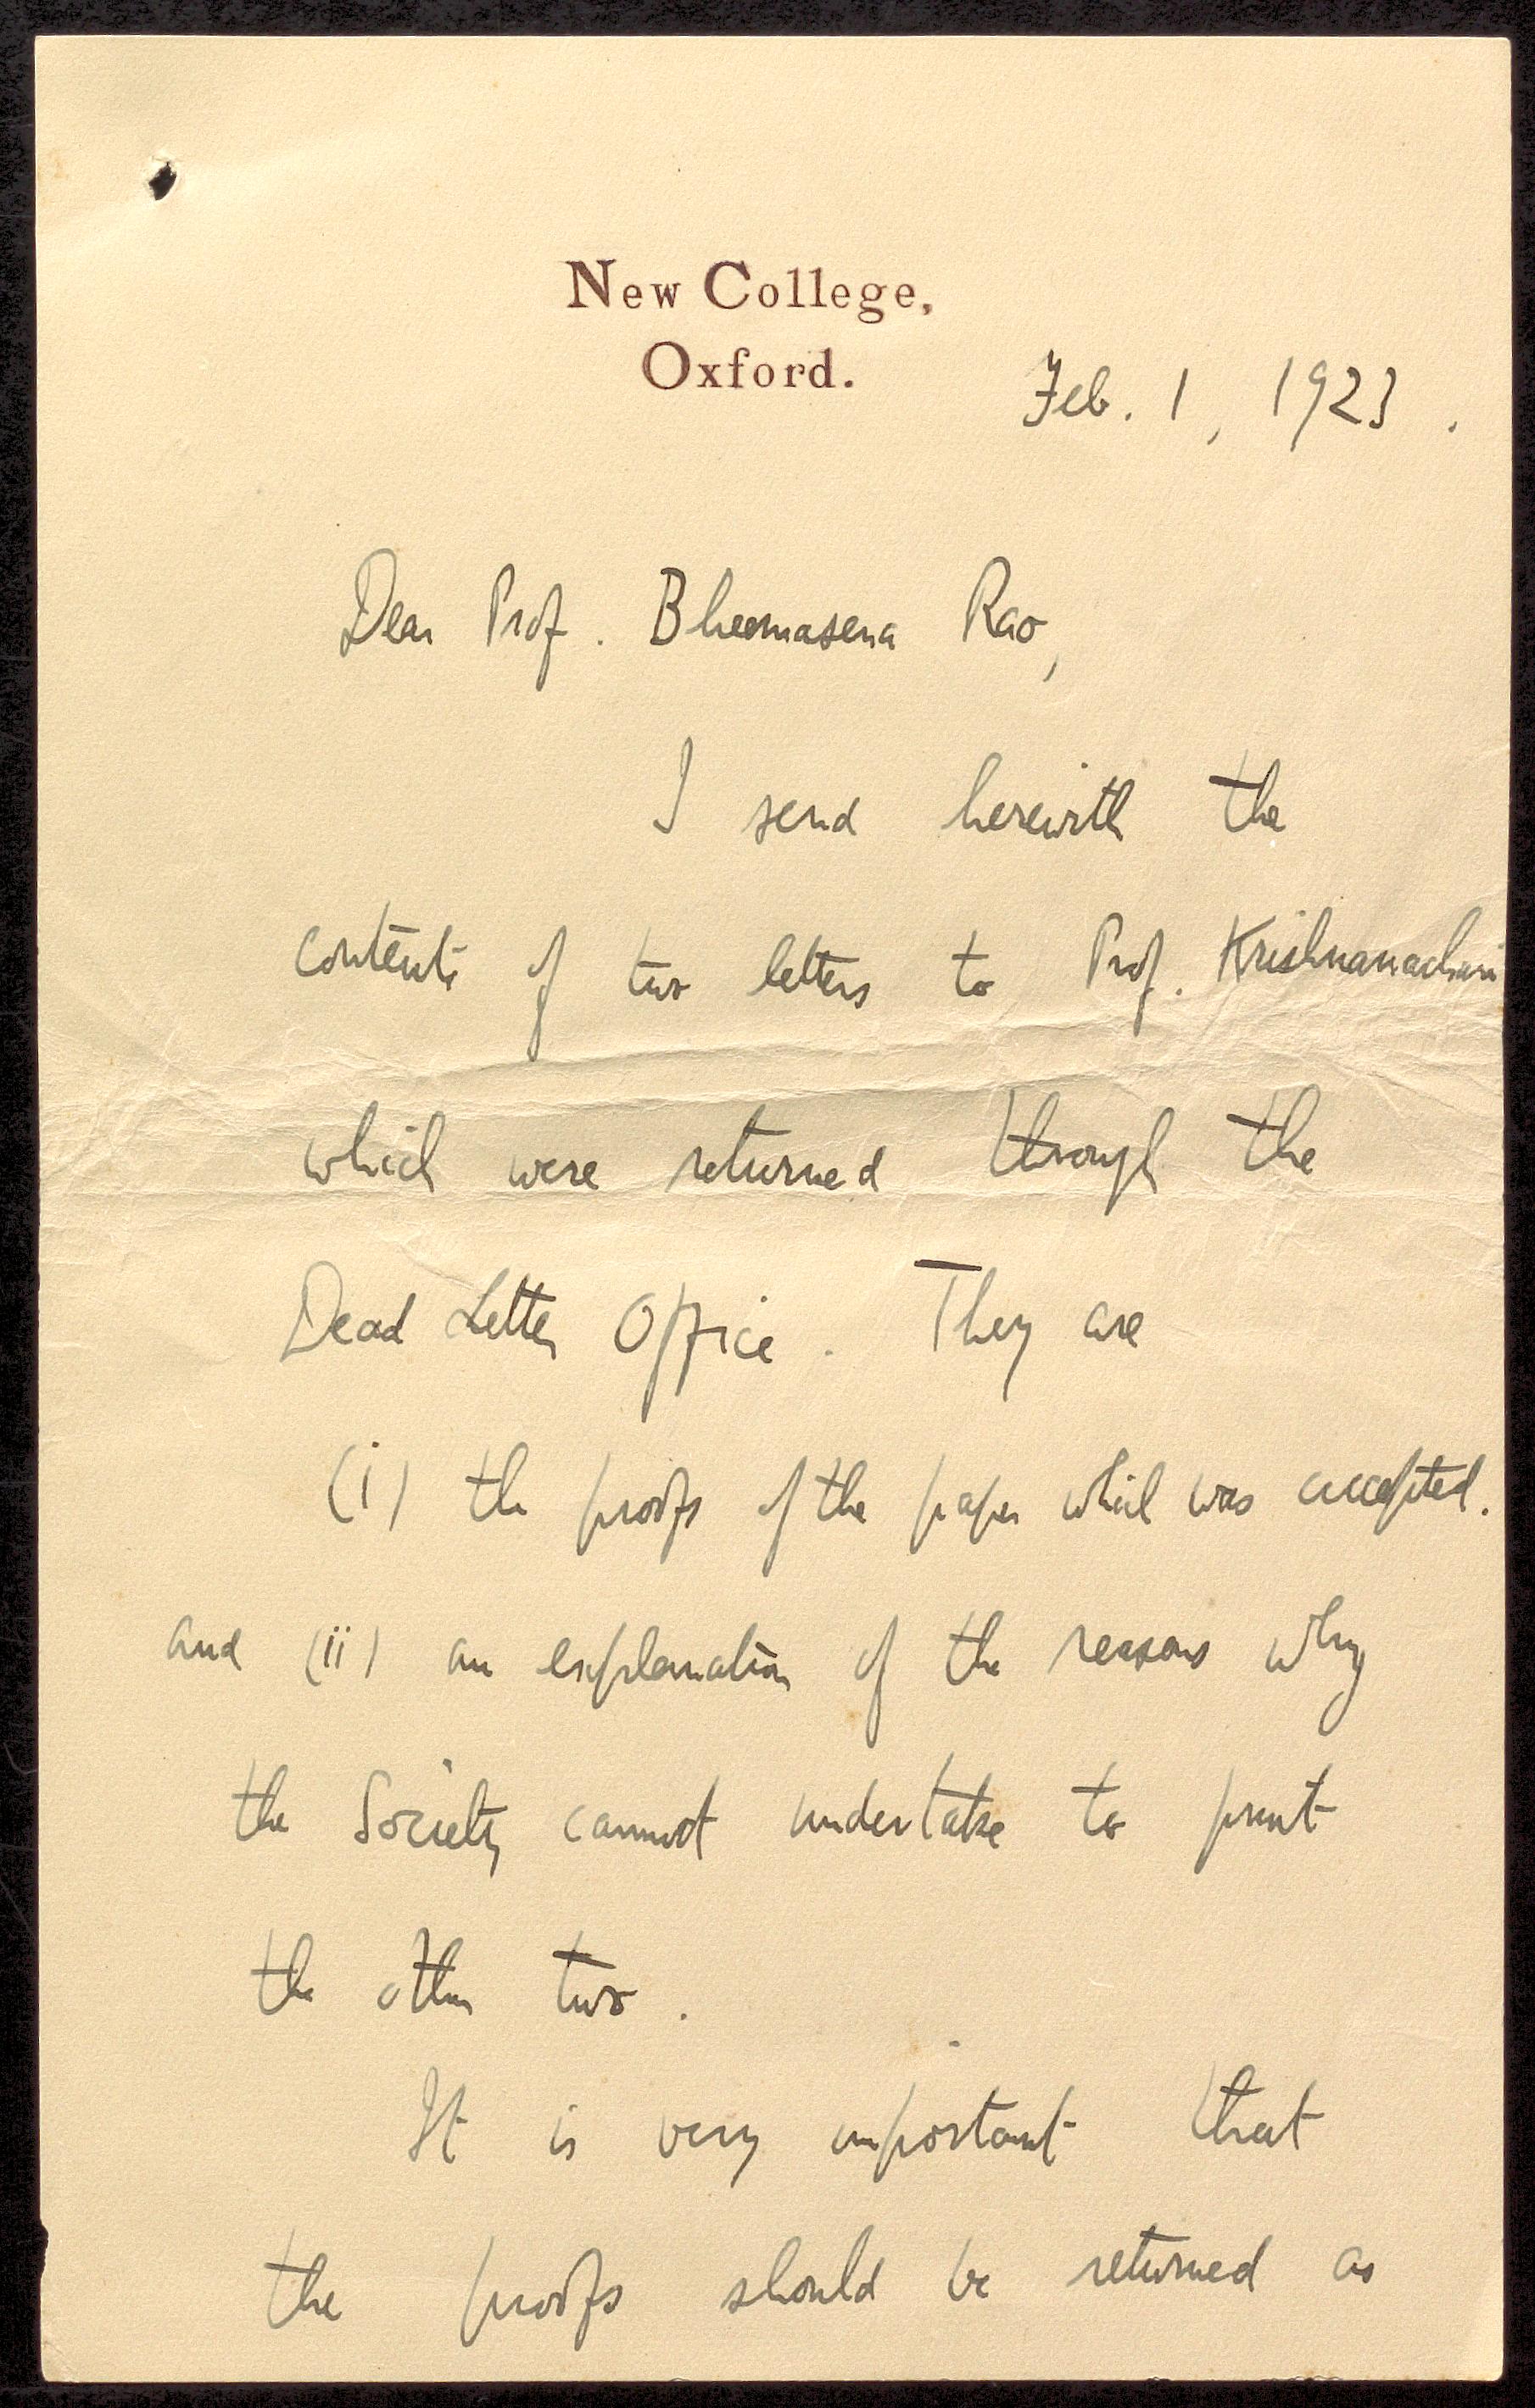 New College,
Oxford.
Feb. 1, 1923.
Dear Prof. Bheemasena Rao,
I send herewith the
contents of two letters to Prof. Krishnamachari
which were returned through the
Dead Letter Office. They are
(i) the proofs of the paper which was accepted.
and (ii) an explanation of the reasons why
the Society cannot undertake to print
the other two.
It is very important that
the proofs should be returned as